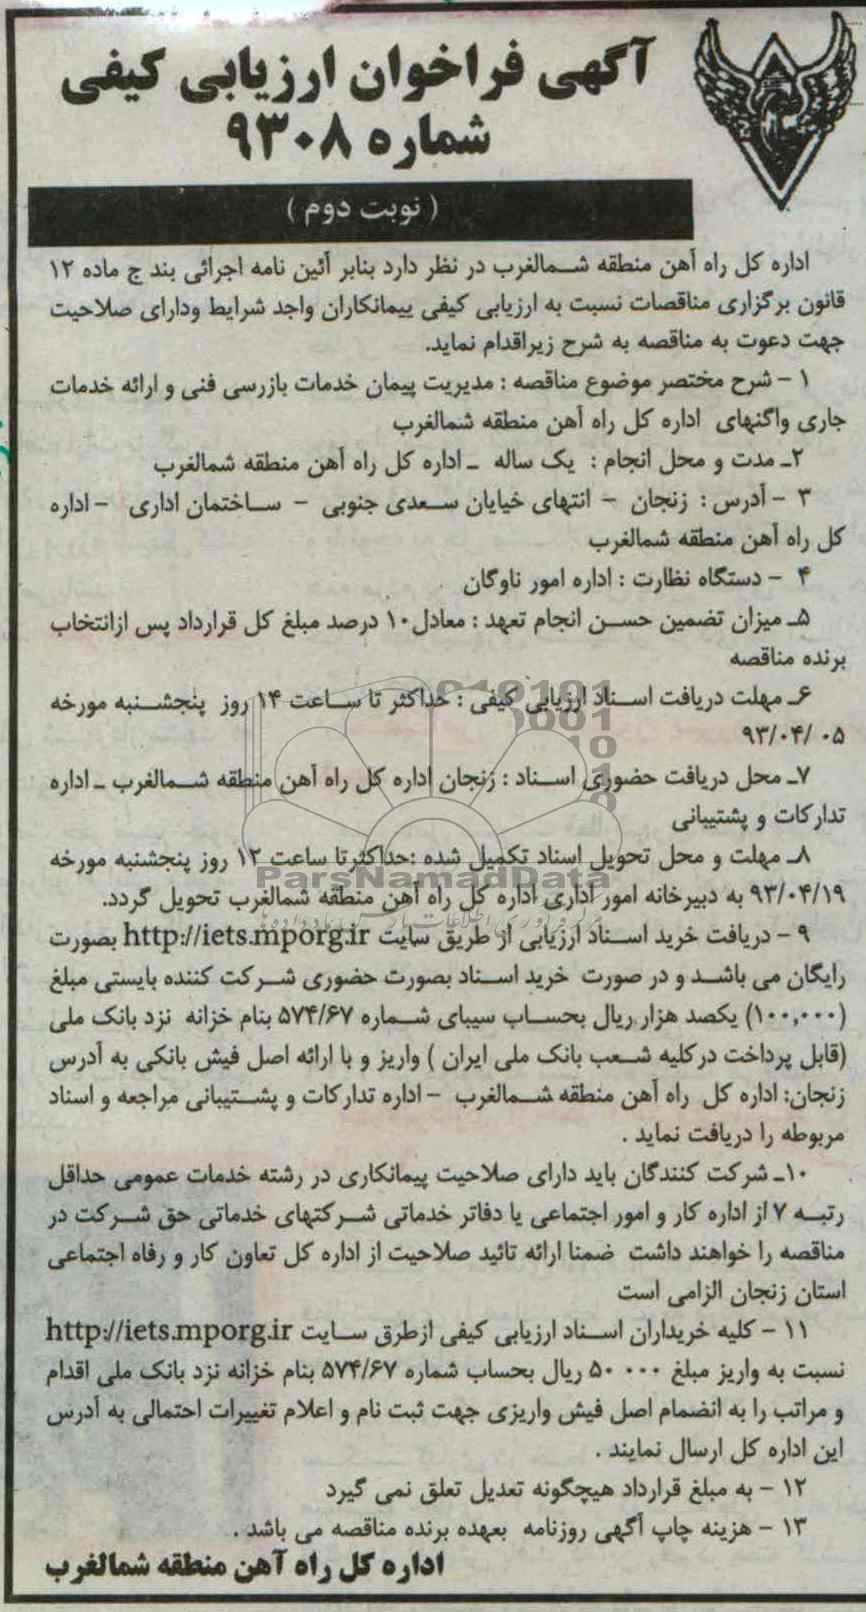 آگهی فراخوان ارزیابی کیفی
شماره ۹۳۰۸
( نوبت دوم )
اداره کل راه آهن منطقه شمالغرب در نظر دارد بنابر آئین نامه اجرائی بند ج ماده ۱۲
قانون برگزاری مناقصات نسبت به ارزیابی کیفی پیمانکاران واجد شرایط ودارای صلاحیت
جهت دعوت به مناقصه به شرح زیراقدام نماید.
۱ - شرح مختصر موضوع مناقصه : مدیریت پیمان خدمات بازرسی فنی و ارائه خدمات
جاری واگنهای اداره کل راه آهن منطقه شمالغرب
۲ـ مدت و محل انجام : یک ساله ـ اداره کل راه آهن منطقه شمالغرب
۳ - آدرس : زنجان - انتهای خیابان سعدی جنوبی - ساختمان اداری - اداره
کل راه آهن منطقه شمالغرب
۴ - دستگاه نظارت : اداره امور ناوگان
۵ـ میزان تضمین حسن انجام تعهد : معادل۱۰ درصد مبلغ کل قرارداد پس ازانتخاب
برنده مناقصه
۶ـ مهلت دریافت اسناد ارزیابی کیفی : حداکثر تا ساعت ۱۴ روز پنجشنبه مورخه
۹۳/۰۴/ ۰۵
۷ـ محل دریافت حضوری اسناد : زنجان اداره کل راه آهن منطقه شمالغرب ـ اداره
تدارکات و پشتیبانی
۸ـ مهلت و محل تحویل اسناد تکمیل شده :حداکثرتا ساعت ۱۲ روز پنجشنبه مورخه
۹۳/۰۴/۱۹ به دبیرخانه امور اداری اداره کل راه آهن منطقه شمالغرب تحویل گردد.
ParsNamadData
۹ - دریافت خرید اسناد ارزیابی از طریق سایت http://iets.mporg.ir بصورت
رایگان می باشد و در صورت خرید اسناد بصورت حضوری شرکت کننده بایستی مبلغ
(۱۰۰,۰۰۰) یکصد هزار ریال بحساب سیبای شماره ۵۷۴/۶۷ بنام خزانه نزد بانک ملی
(قابل پرداخت درکلیه شعب بانک ملی ایران ) واریز و با ارائه اصل فیش بانکی به آدرس
زنجان: اداره کل راه آهن منطقه شمالغرب - اداره تدارکات و پشتیبانی مراجعه و اسناد
مربوطه را دریافت نماید .
۱۰ـ شرکت کنندگان باید دارای صلاحیت پیمانکاری در رشته خدمات عمومی حداقل
رتبه ۷ از اداره کار و امور اجتماعی یا دفاتر خدماتی شرکتهای خدماتی حق شرکت در
مناقصه را خواهند داشت ضمنا ارائه تائید صلاحیت از اداره کل تعاون کار و رفاه اجتماعی
استان زنجان الزامی است
۱۱ - کلیه خریداران اسناد ارزیابی کیفی ازطرق سایت http://iets.mporg.ir
نسبت به واریز مبلغ ۵۰ ۰۰۰ ریال بحساب شماره ۵۷۴/۶۷ بنام خزانه نزد بانک ملی اقدام
و مراتب را به انضمام اصل فیش واریزی جهت ثبت نام و اعلام تغییرات احتمالی به آدرس
این اداره کل ارسال نمایند .
۱۲ - به مبلغ قرارداد هیچگونه تعدیل تعلق نمی گیرد
۱۳ - هزینه چاپ آگهی روزنامه بعهده برنده مناقصه می باشد .
اداره کل راه آهن منطقه شمالغرب